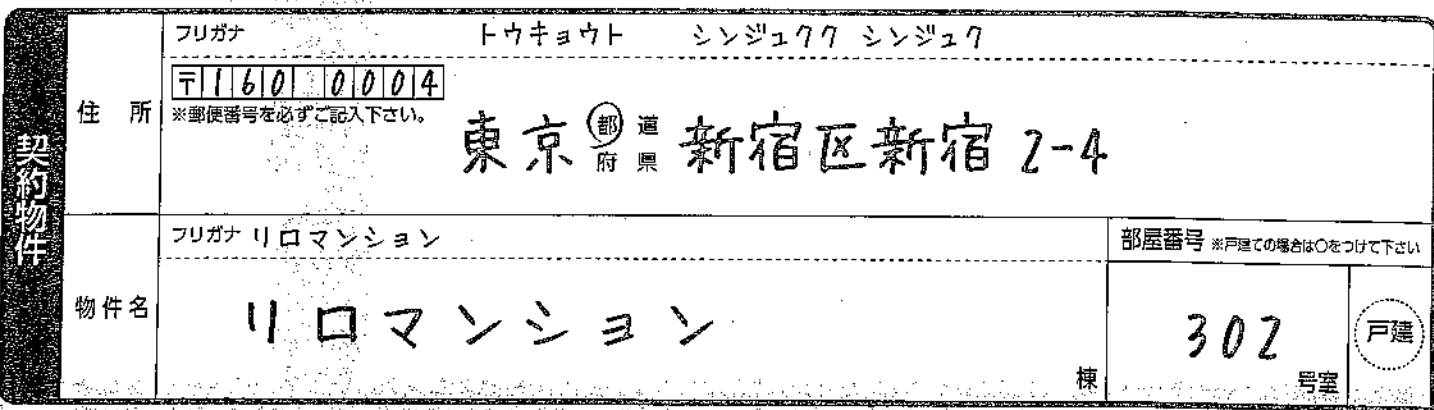 契約物件
住所
フリガナ トウキョウト シンジュクク シンジュク
〒160 0004
※郵便番号を必ずご記入下さい。
東京 都 道 府 県 新宿区新宿 2-4
物件名
フリガナ リロマンション
リロマンション
棟
部屋番号 ※戸建ての場合は○をつけて下さい
302
号室
戸建